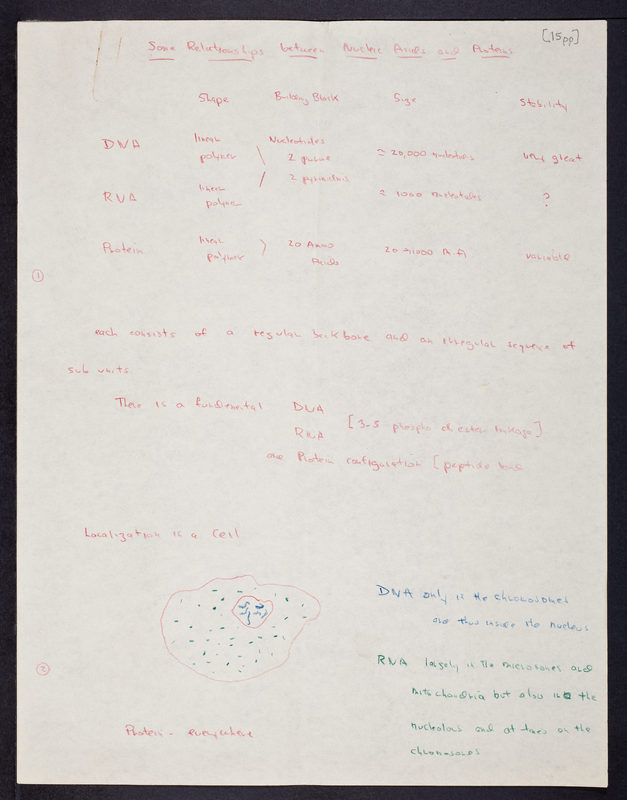 [15pp]
Some Relationships between Nucleic Acids and Proteins
Shape Building Block Size Stability
DNA linear polymer Nucleotides 2 purine ≈ 20,000 nucleotides very great
RNA linear polymer 2 pyrimidines ≈ 1000 nucleotides ?
Protein linear polymer 20 Amino Acids 20 → 1000 A.A variable
1
each consists of a regular backbone and an irregular sequence of
sub units.
There is a fundamental DNA
RNA [3-5 phospho di ester linkage]
and Protein configuration [peptide bond
Localization in a Cell
DNA only in the chromosomes
and thus inside the nucleus
2
RNA largely in the microsomes and
mitochondria but also in the
nucleolus and at times on the
chromosomes
Protein - everywhere